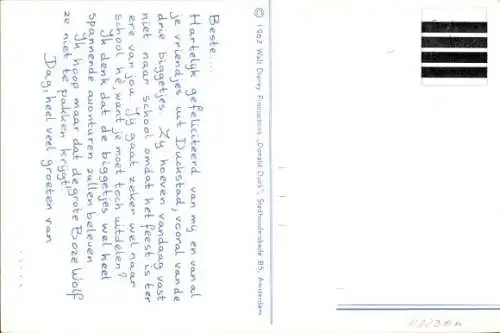 Beste....
Hartelijk gefeliciteerd van mij en van al
je vriendjes uit Duckstad, vooral van de
drie biggetjes. Zij hoeven vandaag vast
niet naar school omdat het feest is ter
ere van jou. Jij gaat zeker wel naar
school hè, want je moet toch uitdelen?
Ik denk dat de biggetjes wel heel
spannende avonturen zullen beleven
Ik hoop maar dat de grote Boze Wolf
ze niet te pakken krijgt!
Dag, heel veel groeten van
.....
© 1967 Walt Disney Productions „Donald Duck", Stadhouderskade 85, Amsterdam